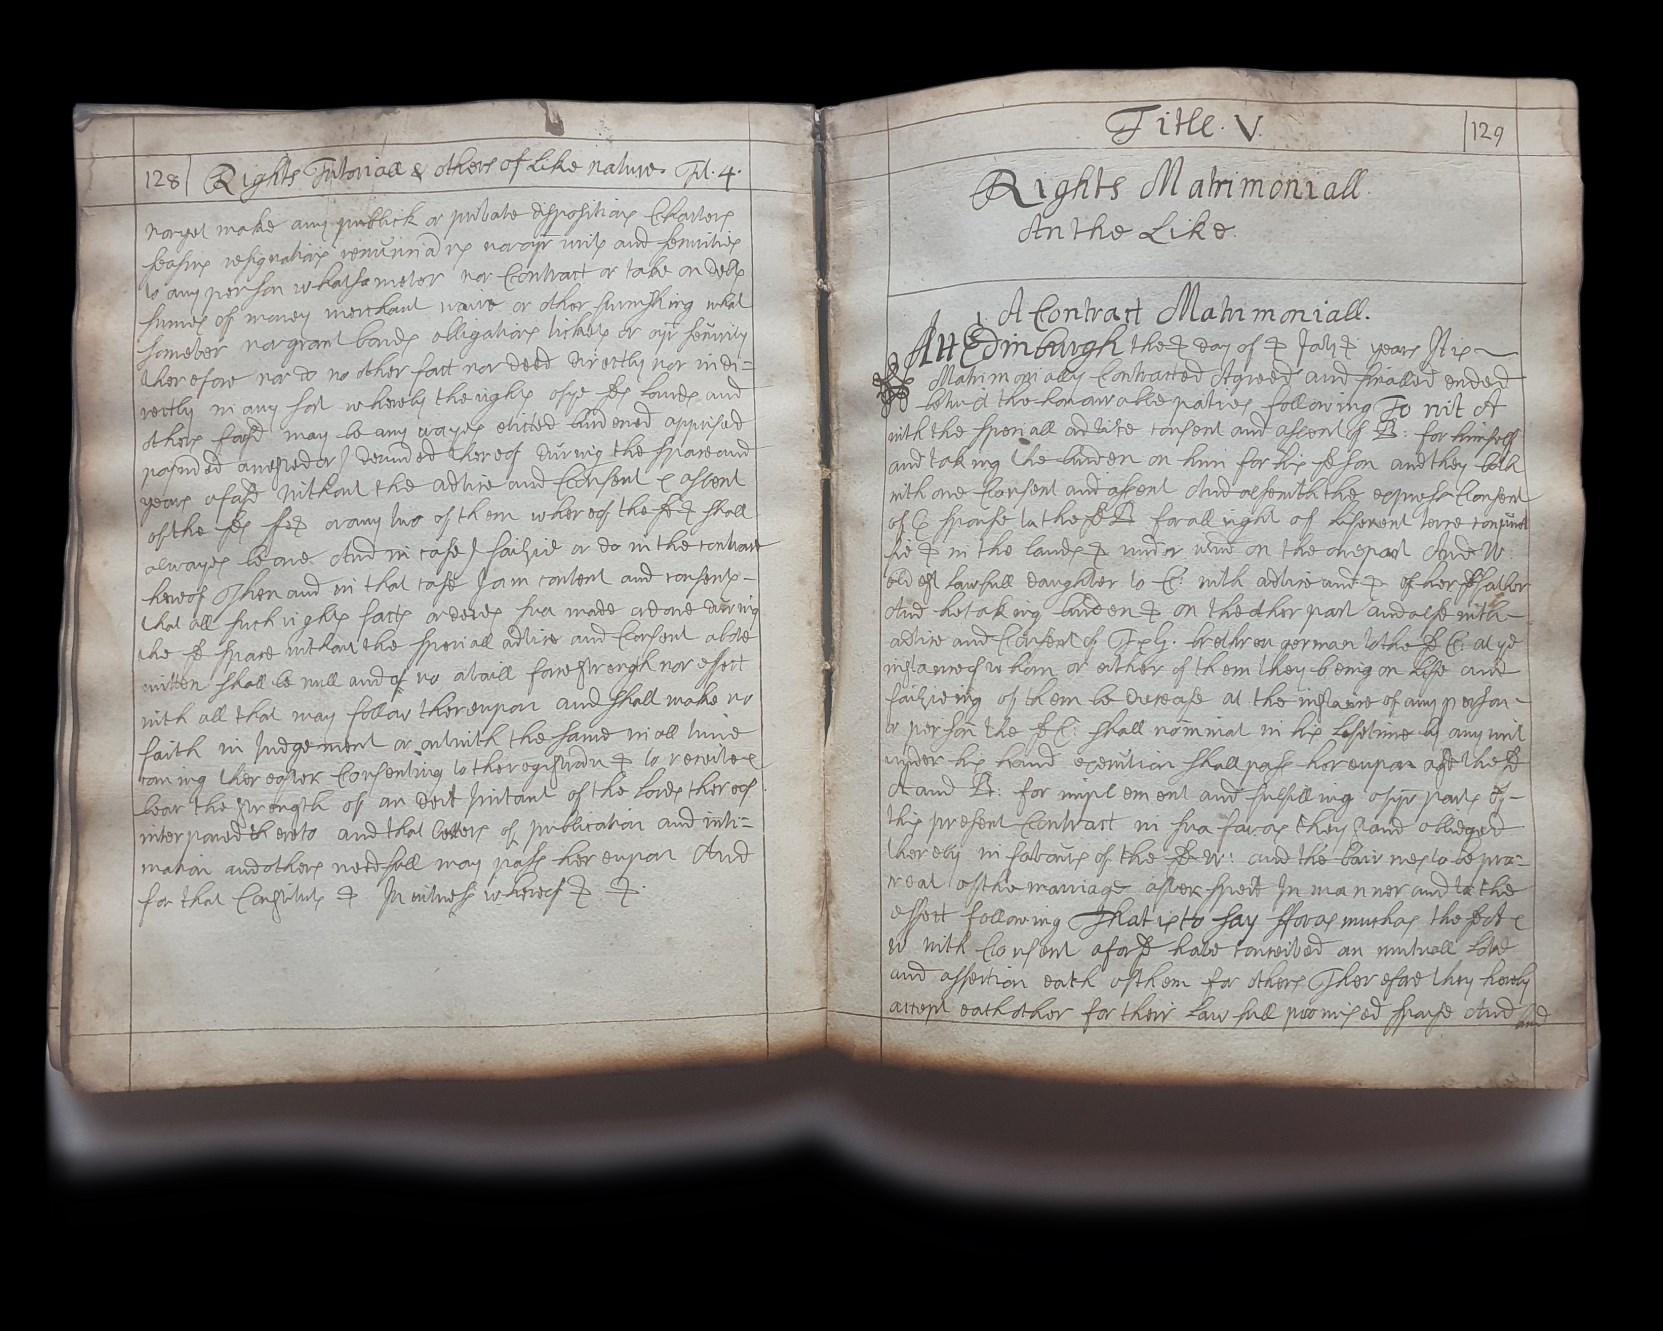 128 Rights Tutoriall & others of Like nature. Tit. 4.
nor yet make any publick or private dispositions Charters
seasins resignations renunciaōnes nor oyr writs and securities
to any person whatsomever nor Contract or take on debts
sumes of money merchant ware or other furnishing what
somever nor grant bonds obligations tickets or oyr security
therefore nor do no other fact nor deed directly nor indi=
rectly in any sort whereby the rights of ye sds Lands and
others forsd may be any wayes evicted burdened apprised
poynded arrested or I denuded thereof during the space and
years aforsd without the advice and Consent & assent
of the sds or any two of them whereof the sd shall
alwayes be one And in case I failzie or do in the contrare
hereof Then and in that case I am content and consents -
that all such rights facts or deeds sua made or done during
the sd space without the speciall advice and Consent above
written shall be null and of no availl force strength nor effect
with all that may follow thereupon and shall make no
faith in Judgement or outwith the same in all time
coming thereafter Consenting to the registraōn & to receive &
bear the strength of an decit of the Lords thereof
interponed thereto and that letters of publication and inti=
mation and others needfull may pass hereupon And
for that Constitute & In witness whereof & &.
Title. V. 129
Rights Matrimoniall
An the Like
A Contract Matrimoniall.
Att Edinburgh the & day of & Jajvj & years It is
Matrimonially Contracted Agreed and finalled ended
betwixt the honourable parties following To wit A
with the speciall advice consent and assent of B: for himself
and taking the burden on him for his sd son and they both
with one Consent and assent And alse with the express Consent
of C spouse to the sd B for all right of Liferent terce conjunct
fie & in the lands & under wrīn on the one part And W:
eldest Lawfull daughter to E: with advice and & of her sd father
And he taking burden & on the other part and alse with
advice and Consent of brethren german to the sd E: at ye
instances whom or either of them they being on Life and
failzieing of them be decease at the instance of any person -
or persōn the sd E: shall nōminat in his Lifetime by any writ
under his hand execution shall pass hereupon agst the sd
A and B: for implement and fulfilling of yr parts of -
this present Contract in sua far as they stand obliedged
thereby in favours of the sd W: and the bairnes to be pro=
creat of the marriage after speit In manner and to the
effect following That is to say fforasmuch as the sd A &
W with Consent aforsd have conceived an mutuall Love
and affection each of them for others Therefore they hereby
accept each other for their Lawfull promised spouse And
and